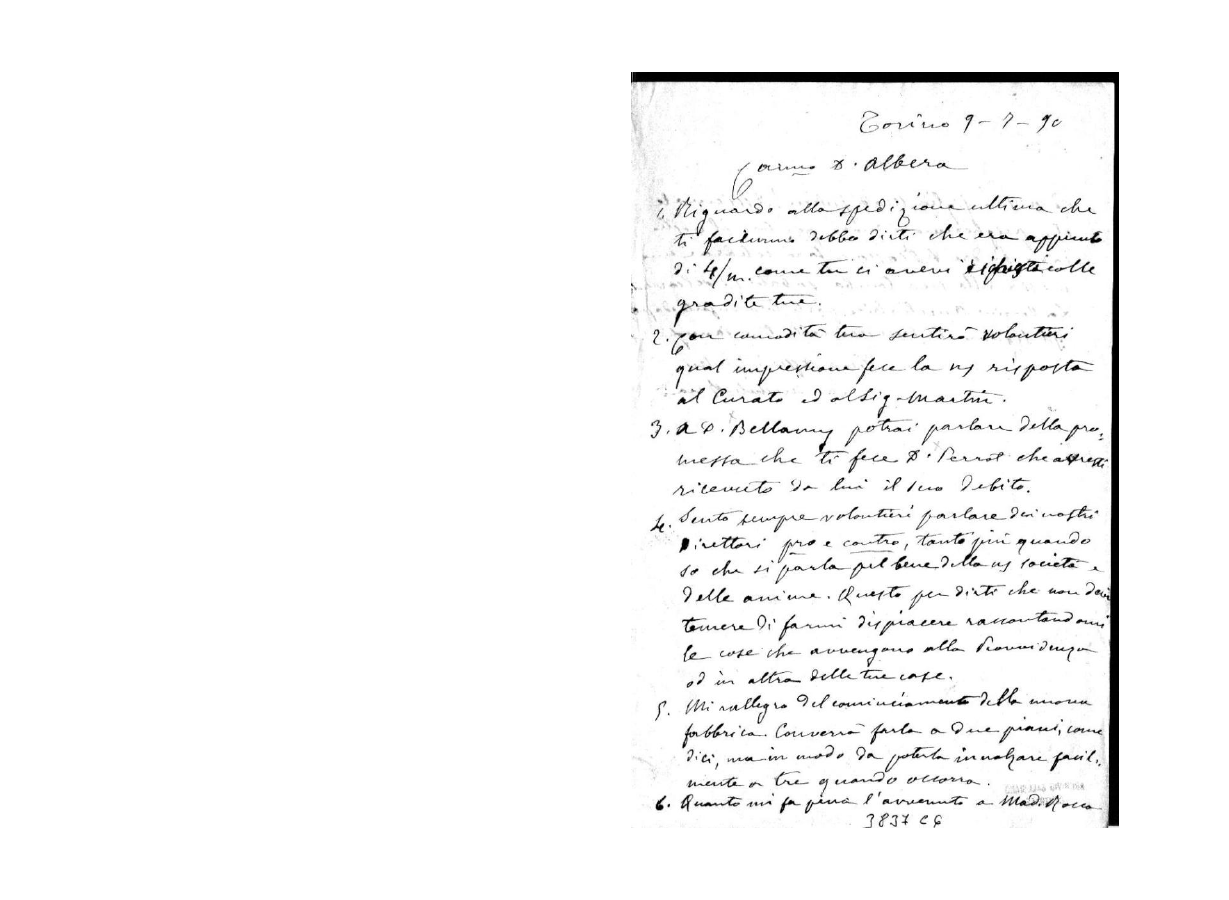 Torino 9-7-90
Carmo D. Albera
1. Riguardo alla spedizione ultima che
ti facemmo debbo dirti che era appunto
di 4/m. come tu ci avevi richiesta colle
gradite tue.
2. Con comodità tua sentirò volontieri
qual impressione fece la ns risposta
al Curato ed al Sig. Martin.
3. A D. Bellamy potrai parlare della pro-
messa che ti fece D. Perrot che avresti
ricevuto da lui il suo debito.
4. Sento sempre volontieri parlare dei nostri
Direttori pro e contro, tanto più quando
so che si parla pel bene della ns società e
delle anime. Questo per dirti che non devi
temere di farmi dispiacere raccontandomi
le cose che avvengono alla Provvidenza
od in altra delle tue case.
5. Mi rallegro del cominciamento della nuova
fabbrica. Converrà farla a due piani, come
dici, ma in modo da poterla innalzare facil-
mente a tre quando occorra.
6. Quanto mi fa pena l'avvenuto a Mad. Rocca
3837 C6